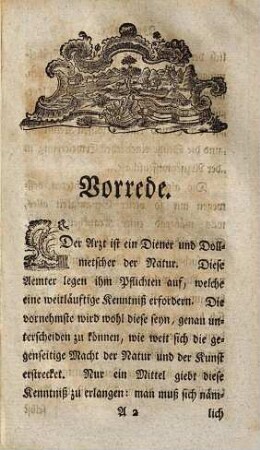 Vorrede.
Der Arzt ist ein Diener und Doll-
metscher der Natur. Diese
Aemter legen ihm Pflichten auf, welche
eine weitläuftige Kenntniß erfordern. Die
vornehmste wird wohl diese seyn, genau un-
terscheiden zu können, wie weit sich die ge-
genseitige Macht der Natur und der Kunst
erstrecket. Nur ein Mittel giebt diese
Kenntniß zu erlangen: man muß sich näm-
A 2 lich